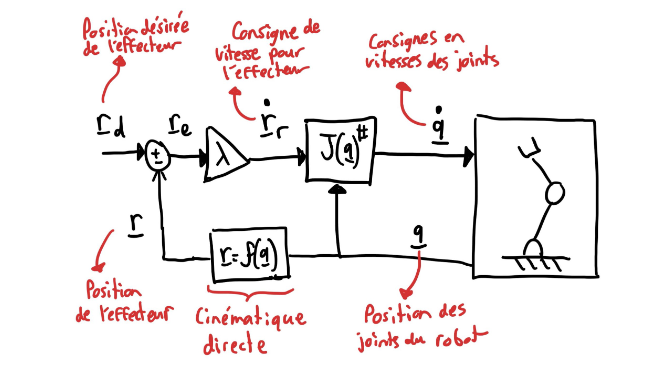 Position désirée
de l'effecteur
Consigne de
vitesse pour
l'effecteur
Consignes en
vitesses des joints
r_d
r_e
λ
ṙ_r
J(q)^#
q̇
±
r
r=f(q)
q
Position
de l'effecteur
Cinématique
directe
Position des
joints du robot